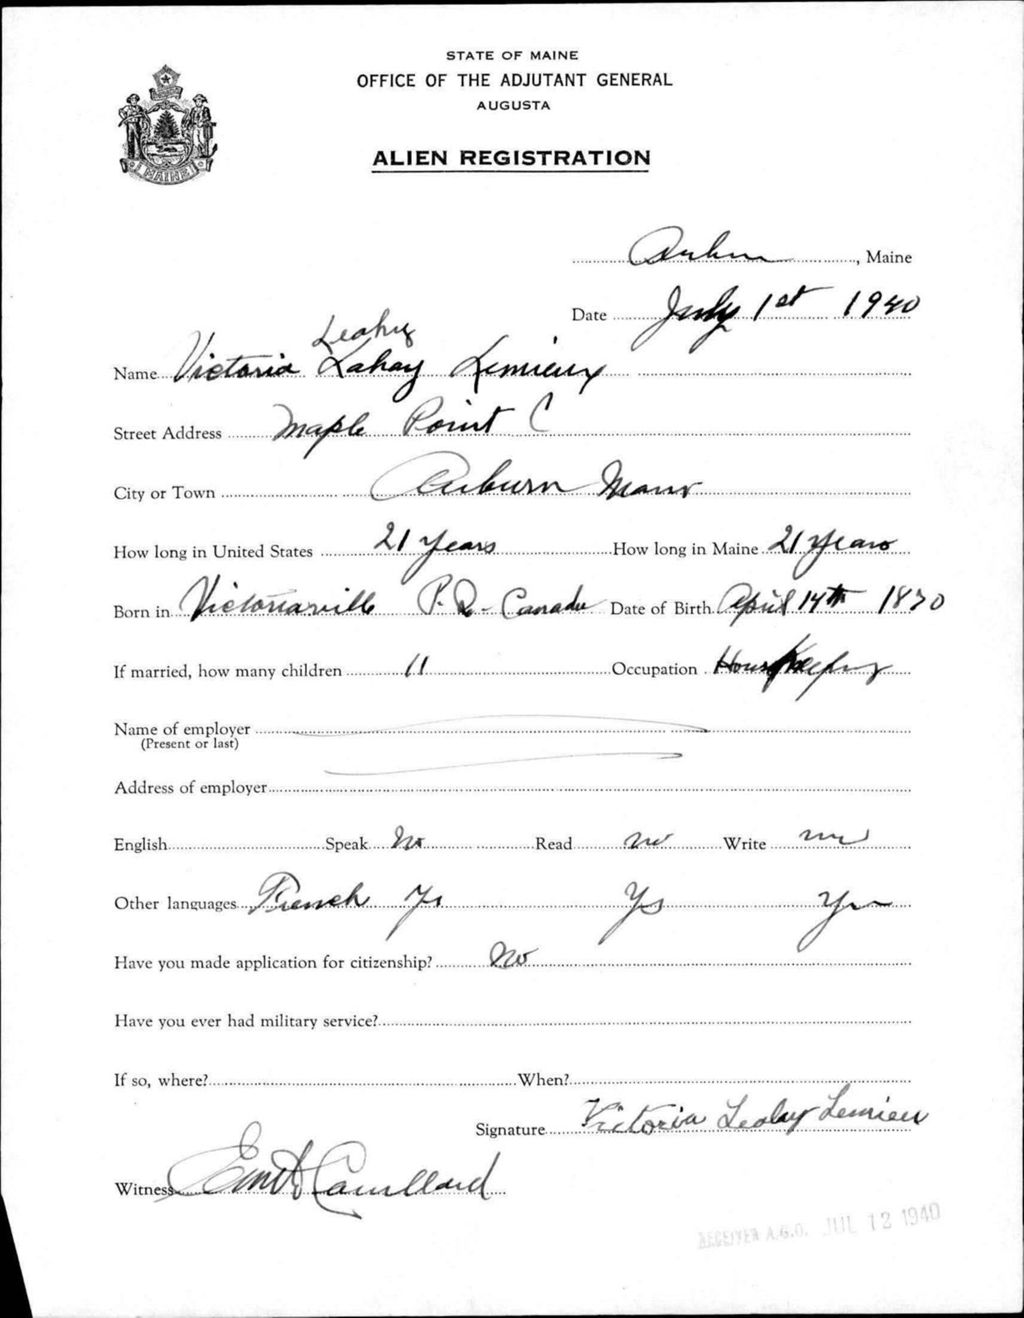 STATE OF MAINE
OFFICE OF THE ADJUTANT GENERAL
AUGUSTA
ALIEN REGISTRATION
MAINE
Auburn, Maine
Date July 1st 1940
Leahy
Name Victoria Lahay Lemieux
Street Address Maple Point C
City or Town Auburn Maine
How long in United States 21 Years How long in Maine 21 Years
Born in Victoriaville P.Q. Canada Date of Birth April 14th 1870
If married, how many children 11 Occupation Housekeeping
Name of employer
(Present or last)
Address of employer
English Speak No Read no Write no
Other languages French Ys Ys Yes
Have you made application for citizenship? No
Have you ever had military service?
If so, where? When?
Signature Victoria Leahy Lemieux
Witness
RECEIVED A.G.O. JUL 12 1940